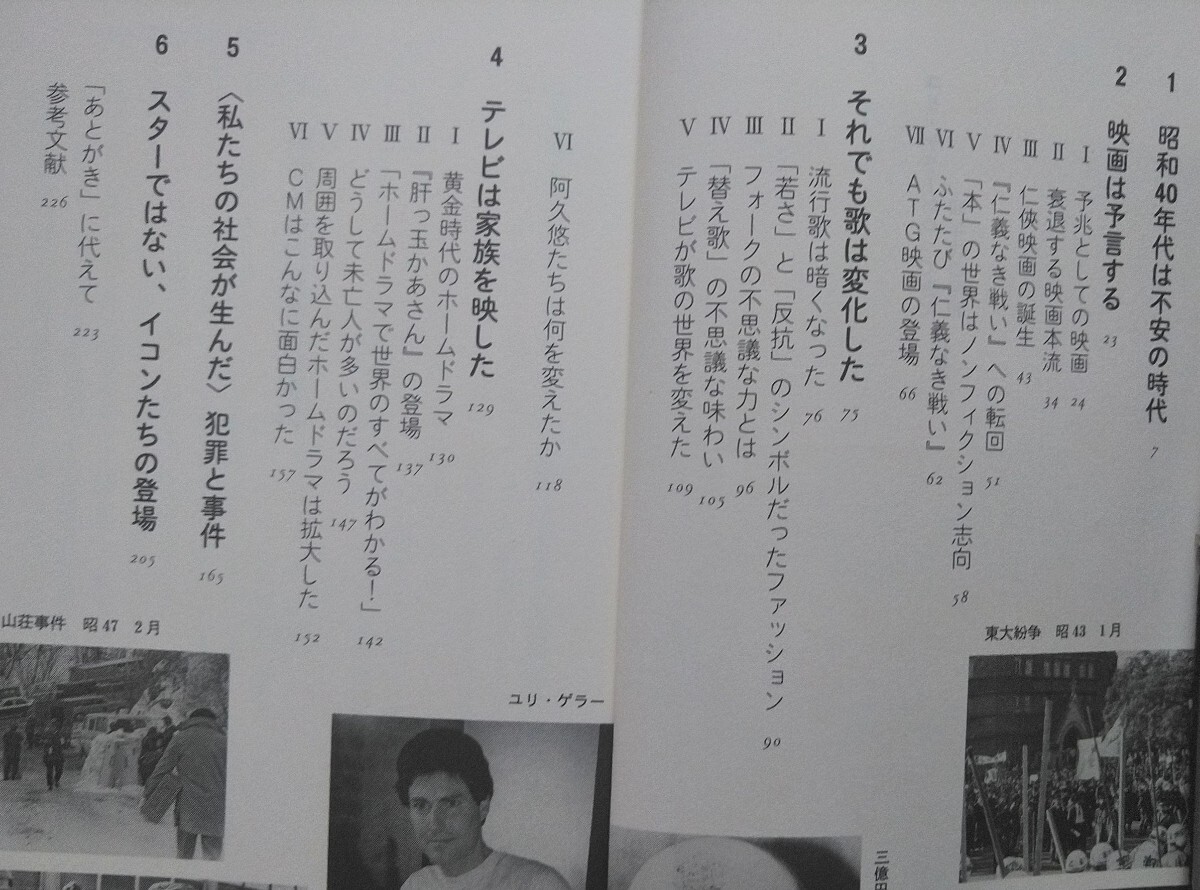 1 昭和40年代は不安の時代 7
2 映画は予言する 23
Ⅰ 予兆としての映画 24
Ⅱ 衰退する映画本流 34
Ⅲ 仁俠映画の誕生 43
Ⅳ 『仁義なき戦い』への転回 51
Ⅴ 「本」の世界はノンフィクション志向 58
Ⅵ ふたたび『仁義なき戦い』 62
Ⅶ ATG映画の登場 66
3 それでも歌は変化した 75
Ⅰ 流行歌は暗くなった 76
Ⅱ 「若さ」と「反抗」のシンボルだったファッション 90
Ⅲ フォークの不思議な力とは 96
Ⅳ 「替え歌」の不思議な味わい 105
Ⅴ テレビが歌の世界を変えた 109
Ⅵ 阿久悠たちは何を変えたか 118
4 テレビは家族を映した 129
Ⅰ 黄金時代のホームドラマ 130
Ⅱ 『肝っ玉かあさん』の登場 137
Ⅲ 「ホームドラマで世界のすべてがわかる!」 142
Ⅳ どうして未亡人が多いのだろう 147
Ⅴ 周囲を取り込んだホームドラマは拡大した 152
Ⅵ CMはこんなに面白かった 157
5 〈私たちの社会が生んだ〉犯罪と事件 165
6 スターではない、イコンたちの登場 205
「あとがき」に代えて 223
参考文献 226
東大紛争 昭43 1月
三億円
ユリ・ゲラー
山荘事件 昭47 2月